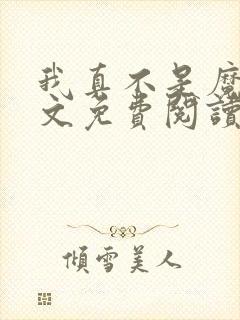 我真不是魔
文免費閱讀
傾雪美人